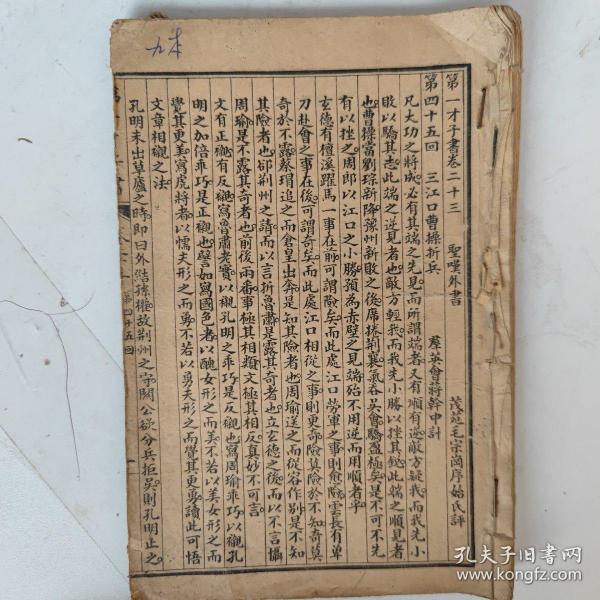 九本
第一才子書卷二十三 聖嘆外書 茂苑毛宗崗序始氏評
第四十五回 三江口曹操折兵 羣英會蔣幹中計
凡大功之將成必有其端之先見而所謂端者又有順有逆敵方疑我而我先小
敗以驕其志此端之逆見者也敵方輕我而我先小勝以挫其銳此端之順見者
也曹操當劉琮新降豫州新敗之後席捲荊襄氣吞吳會驕盈極矣是不可不先
有以挫之周郎以江口之小勝預為赤壁之見端殆不用逆而用順者乎
玄德有檀溪躍馬一事在前可謂險矣而此處江口勞軍之事則愈險雲長有單
刀赴會之事在後可謂奇矣而此處江口相從之事則更奇險莫險於不知奇莫
奇於不露蔡瑁追之而倉皇出奔是知其險者也周瑜送之而從容作別是不知
其險者也卻荊州之請而以言折魯肅是露其奇者也立玄德之後而以不言懾
周瑜是不露其奇者也前後兩番事極其相類文極其相反真妙不可言
文有正襯有反襯寫魯肅老實以襯孔明之乖巧是反襯也寫周瑜乖巧以襯孔
明之加倍乖巧是正襯也譬如寫國色者以醜女形之而美不若以美女形之而
覺其更美寫虎將者以懦夫形之而勇不若以勇夫形之而覺其更勇讀此可悟
文章相襯之法
孔明未出草廬之時即曰外結孫權故荊州之守關公欲分兵拒吳則孔明止之
第四十五回
一
孔夫子旧书网
www.kongfz.com